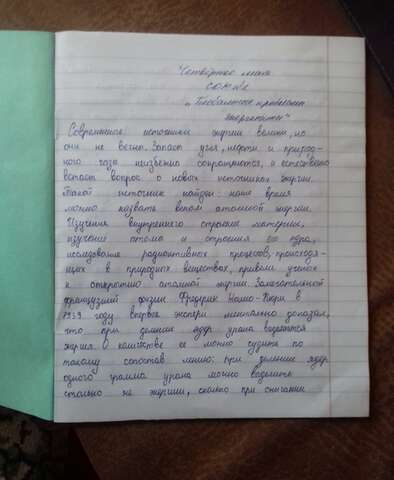 Четвёртое мая
СОЧ №2
„Глобальные проблемы
энергетики"
Современное источники энергии велики, но
они не вечно. Запасы угля, нефти и природ-
ного газа неизбежно сокращаются, и естественно
встаёт вопрос о новых источниках энергии.
Такой источник найден: наше время
можно назвать веком атомной энергии.
Изучения внутреннего строения материи,
изучение атома и строения его ядра,
исследования радиоактивных процессов, происходя-
щих в природных веществах, привели ученых
к открытию атомной энергии. Замечательный
французский физик Фредерик Жолио-Кюри в
1939 году впервые экспери ментально доказал,
что при делении ядер урана выделяется
энергия. О количестве ее можно судить по
такому сопостав лению: при делении ядер
одного грамма урана можно выделить
столько же энергии, сколько при сжигании